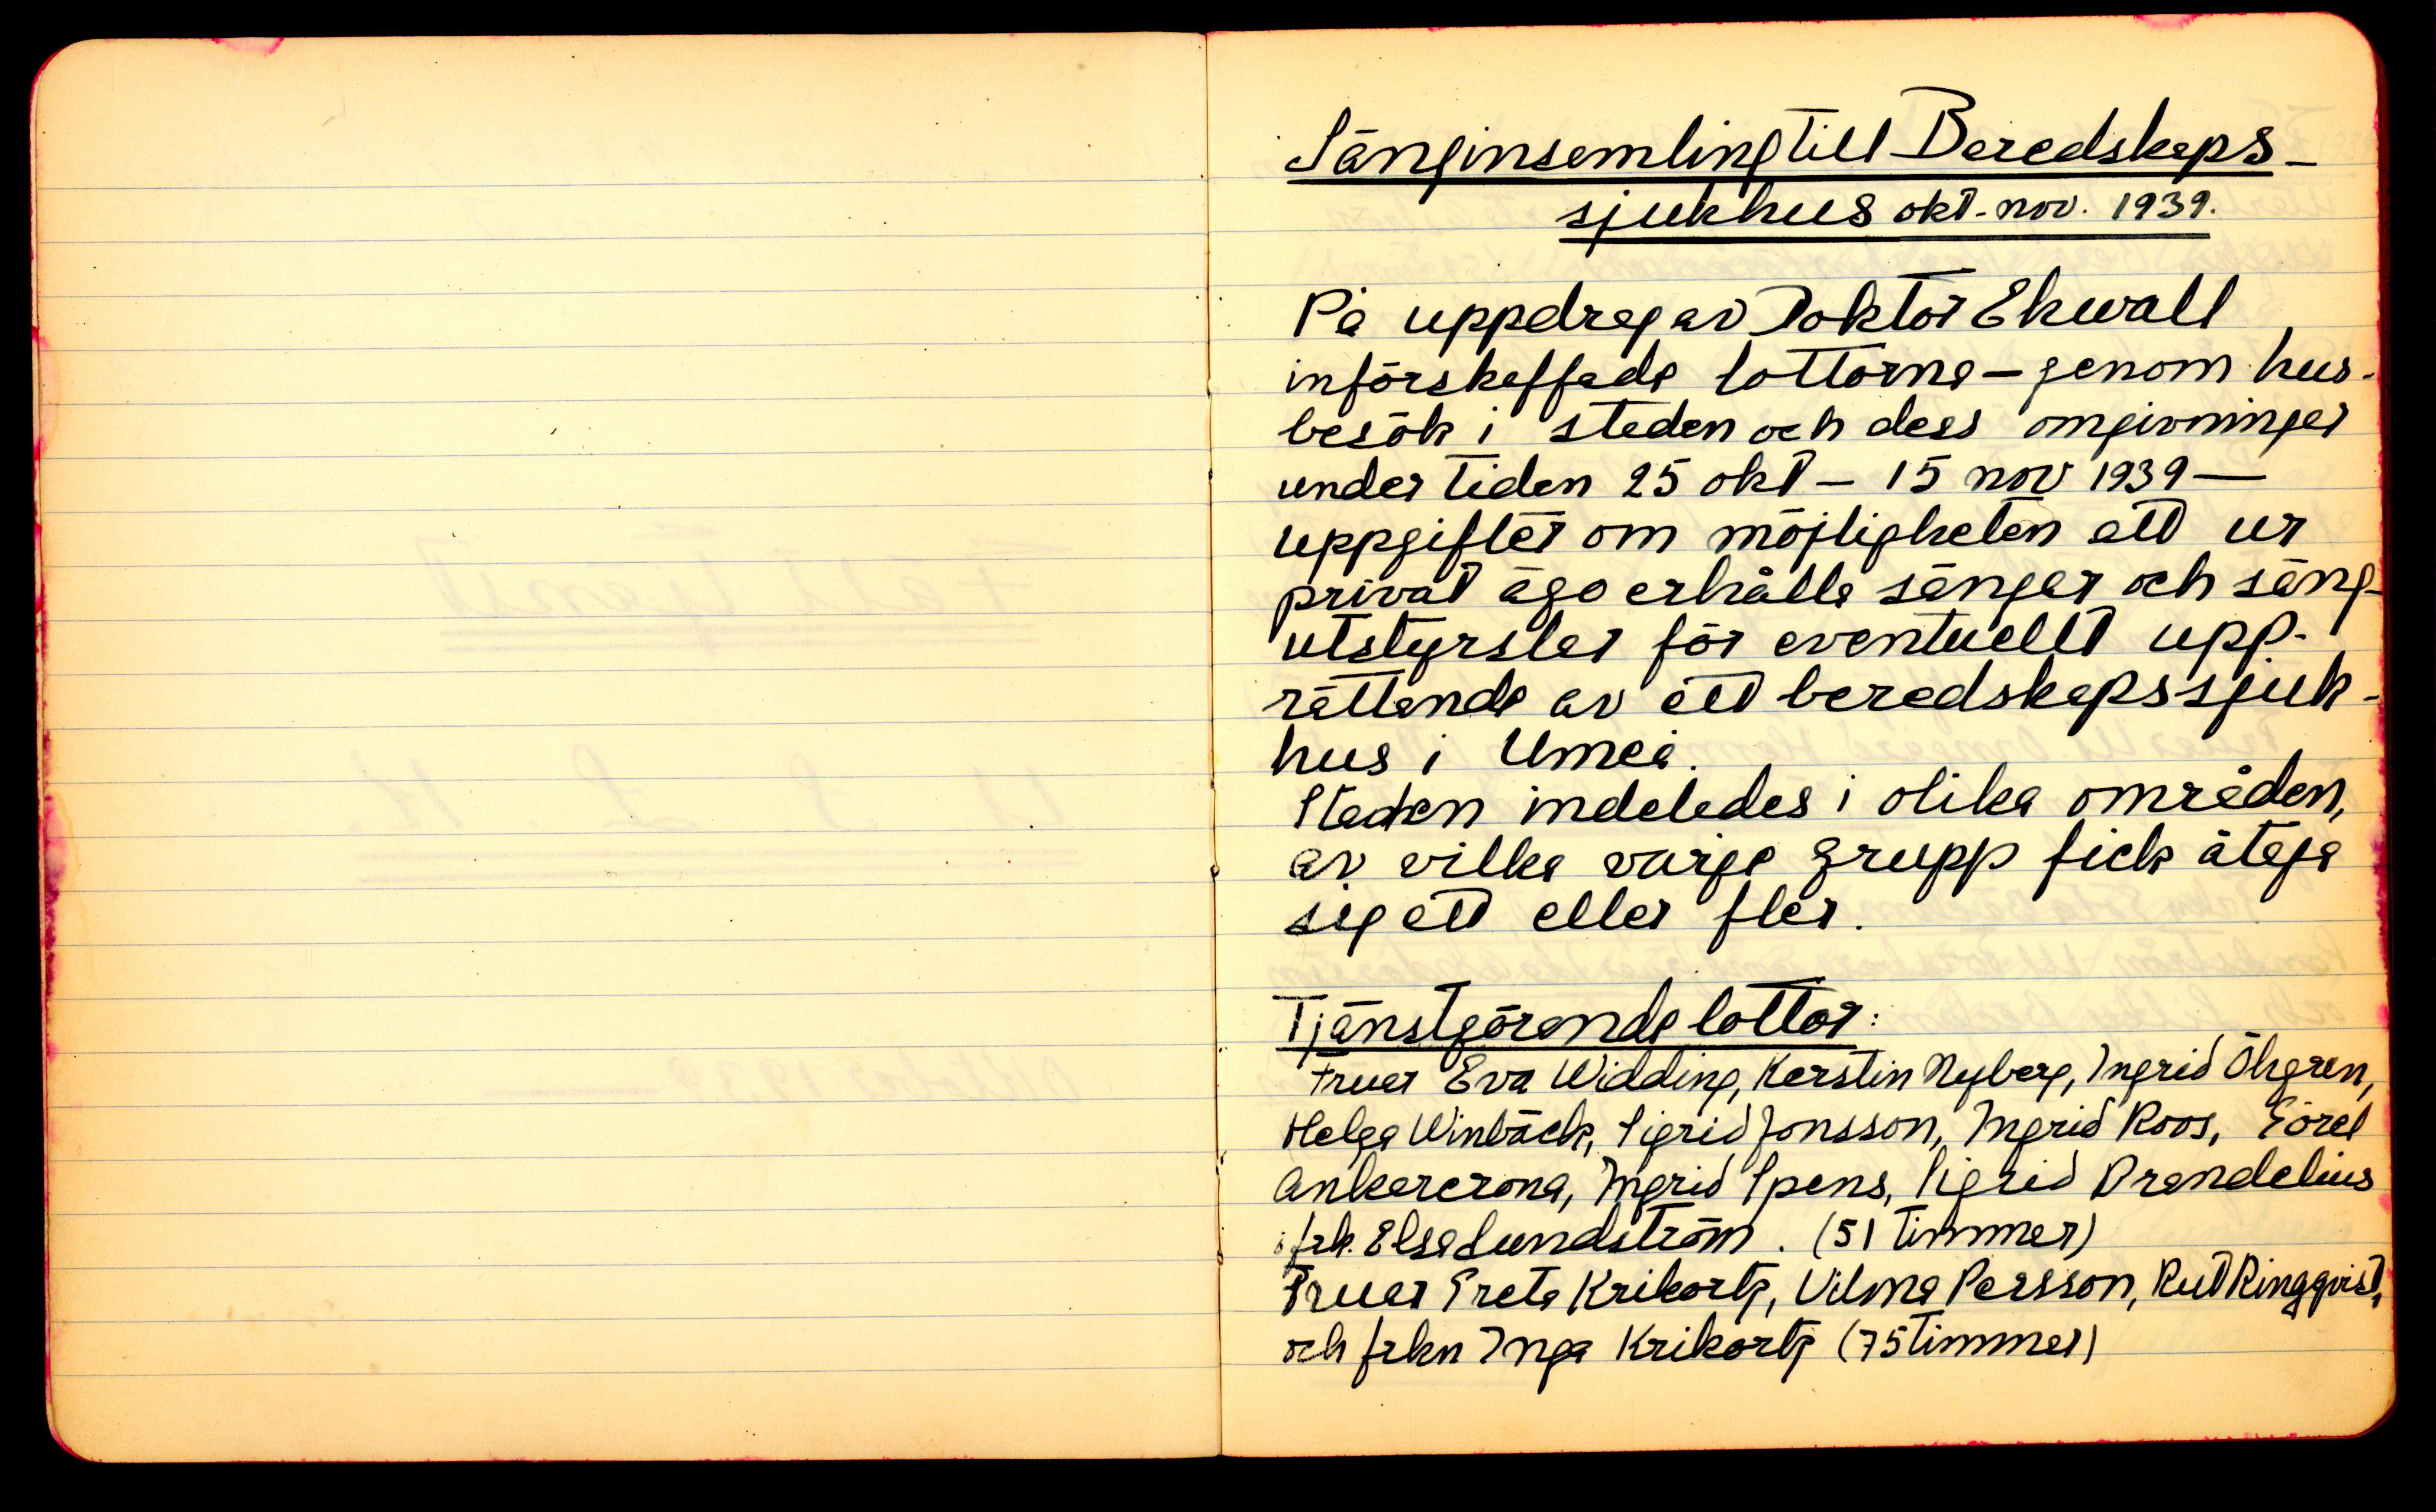 Sänginsamling till Beredskaps-
sjukhus okt-nov. 1939.
På uppdrag av Doktor Ekwall
införskaffade lottorna – genom hus-
besök i staden och dess omgivningar
under tiden 25 okt – 15 nov 1939 –
uppgifter om möjligheten att ur
privat ägo erhålla sängar och säng-
utstyrslar för eventuellt upp-
rättande av ett beredskapssjuk-
hus i Umeå.
Staden indelades i olika områden,
av vilka varje grupp fick åtaga
sig ett eller fler.
Tjänstgörande lottor:
Fruar Eva Widding, Kerstin Nyberg, Ingrid Öhgren,
Helga Winbäck, Sigrid Jonsson, Ingrid Roos, Görel
Ankarcrona, Ingrid Spens, Sigrid Brandelius
frk. Elsa Lundström. (51 timmar)
Fruar Greta Krikortz, Vilma Persson, Rut Ringqvist,
och frkn Inga Krikortz (75 timmar)